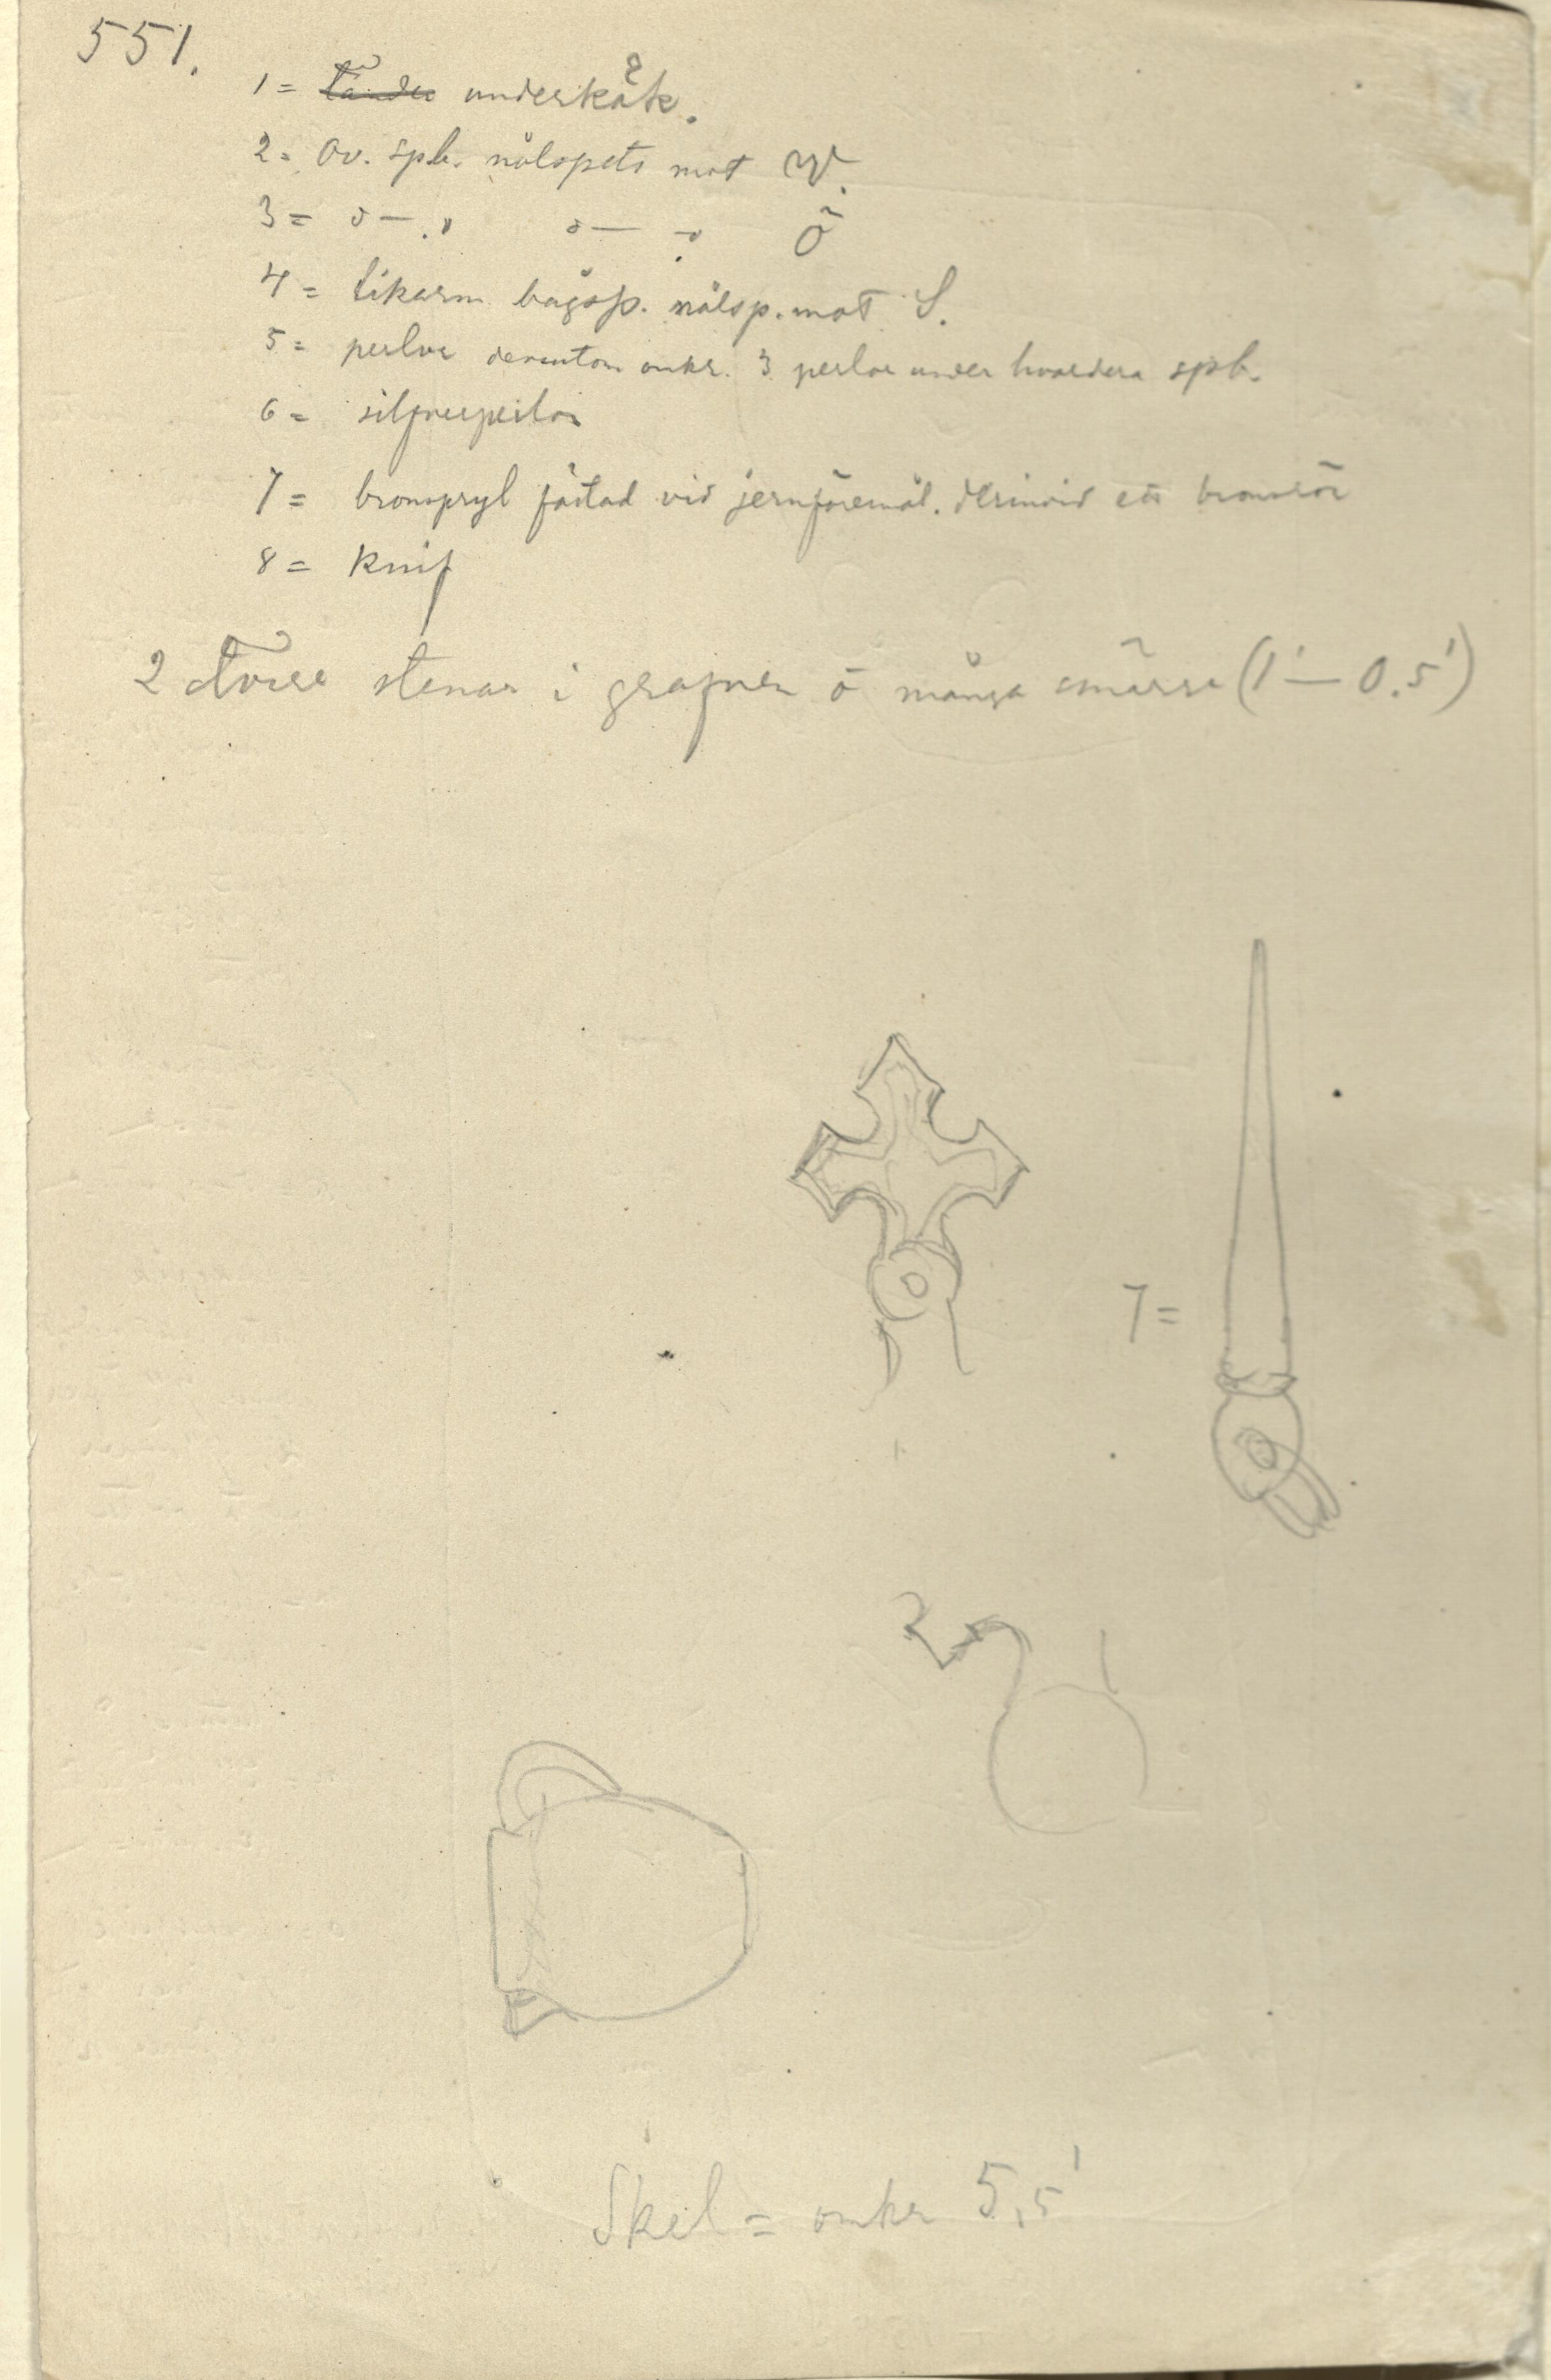 551.
1 = Tänder underkäk.
2 = Ov. spb. nålspets mot W.
3 = d— " d— " Ö
4 = likarm bågsp. nålsp. mot S.
5 = perlor omkr. 3 perlor under hvardera spb.
6 = silfverperlor
7 = bronspryl fästad vid jernföremål. derinvid ett bronsrör
8 = Knif
2 större stenar i grafven o många smärre (1' — 0.5')
7 =
Skel = omkr 5,5'